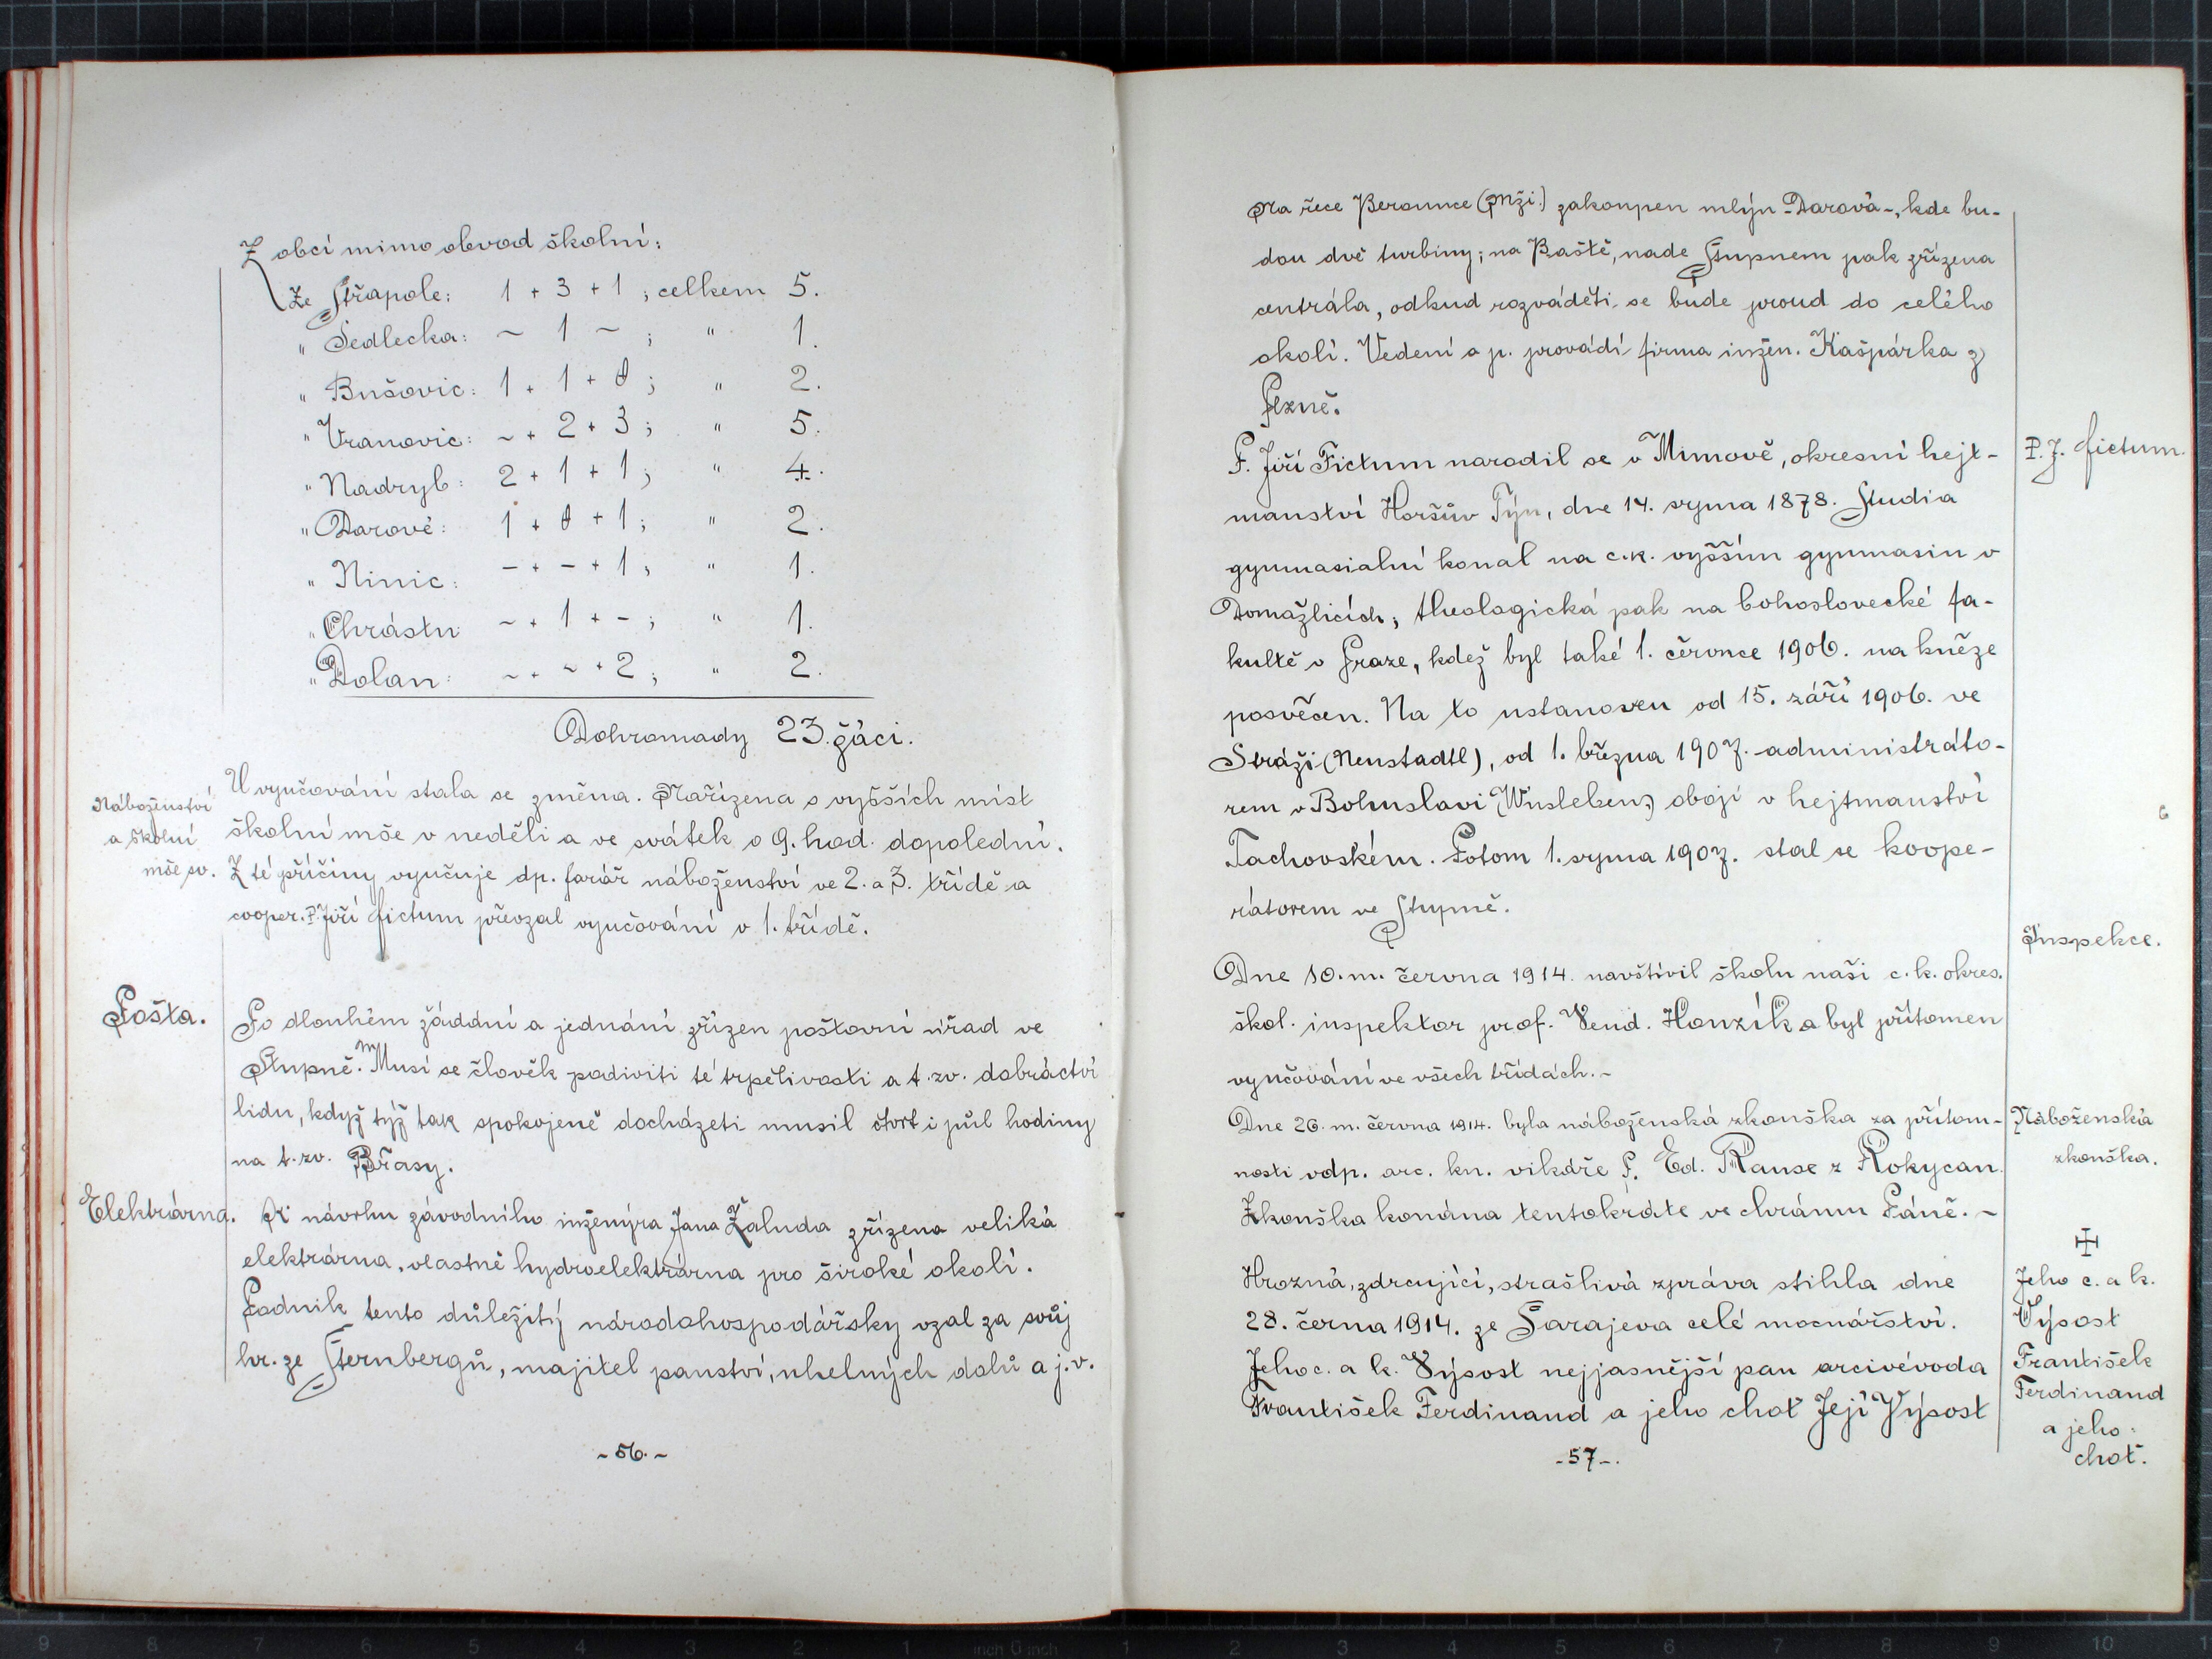 Z obcí mimo obvod školní:
Ze Střapole: 1 + 3 + 1 ; celkem 5.
" Sedlecka: ~ 1 ~ ; " 1.
" Bušovic: 1 + 1 + 0 ; " 2.
" Vranovic: ~ + 2 + 3 ; " 5.
" Nadryb: 2 + 1 + 1 ; " 4.
" Darové: 1 + 0 + 1 ; " 2.
" Ninic: - + - + 1 ; " 1.
" Chrástu ~ + 1 + - ; " 1.
" Dolan: ~ + ~ + 2 ; " 2.
Dohromady 23 žáci.
Náboženství
a školní
mše sv.
U vyučování stala se změna. Nařízena s vyšších míst
školní mše v neděli a ve svátek o 9. hod. dopolední.
Z té příčiny vyučuje dp. farář náboženství ve 2. a 3. třídě a
cooper. P. Jiří Fictum převzal vyučování v 1. třídě.
Pošta.
Po dlouhém žádání a jednání zřízen poštovní úřad ve
Stupně. Musí se člověk podiviti té trpělivosti a t. zv. dobráctví
lidu, když týž tak spokojeně docházeti musil čtvrt i půl hodiny
na t. zv. Břasy.
Elektrárna.
K návrhu závodního inženýra Jana Žaluda zřízena veliká
elektrárna, vlastně hydroelektrárna pro široké okolí.
Podnik tento důležitý národohospodářsky vzal za svůj
hr. ze Šternbergů, majitel panství, uhelných dolů a j. v.
~ 56. ~
Na řece Berounce (Mži) zakoupen mlýn - Darová -, kde bu-
dou dvě turbiny; na Baště, nade Stupnem pak zřízena
centrála, odkud rozváděti se bude proud do celého
okolí. Vedení a p. provádí firma inžen. Kašpárka z
Plzně.
P. J. Fictum.
P. Jiří Fictum narodil se v Mimově, okresní hejt-
manství Horšův Týn, dne 14. srpna 1878. Studia
gymnasialní konal na c. k. vyšším gymnasiu v
Domažlicích, theologická pak na bohoslovecké fa-
kultě v Praze, kdež byl také 1. července 1906. na kněze
posvěcen. Na to ustanoven od 15. září 1906. ve
Stráži (Neustadtl), od 1. března 1907. administráto-
rem v Bohuslavi (Wusleben) obojí v hejtmanství
Tachovském. Potom 1. srpna 1907. stal se koope-
rátorem ve Stupně.
Inspekce.
Dne 10. m. června 1914. navštívil školu naši c. k. okres.
škol. inspektor prof. Vend. Honzík a byl přítomen
vyučování ve všech třídách. -
Náboženská
zkouška.
Dne 26. m. června 1914. byla náboženská zkouška za přítom-
nosti vdp. arc. kn. vikáře P. Ed. Rause z Rokycan.
Zkouška konána tentokráte ve chrámu Páně. ~
Jeho c. a k.
Výsost
František
Ferdinand
a jeho
choť.
Hrozná, zdrcující, strašlivá zpráva stihla dne
28. černa 1914. ze Sarajeva celé mocnářství.
Jeho c. a k. Výsost nejjasnější pan arcivévoda
František Ferdinand a jeho choť Její Výsost
- 57 -.
9 8 7 6 5 4 3 2 1 inch 0 inch 1 2 3 4 5 6 7 8 9 10